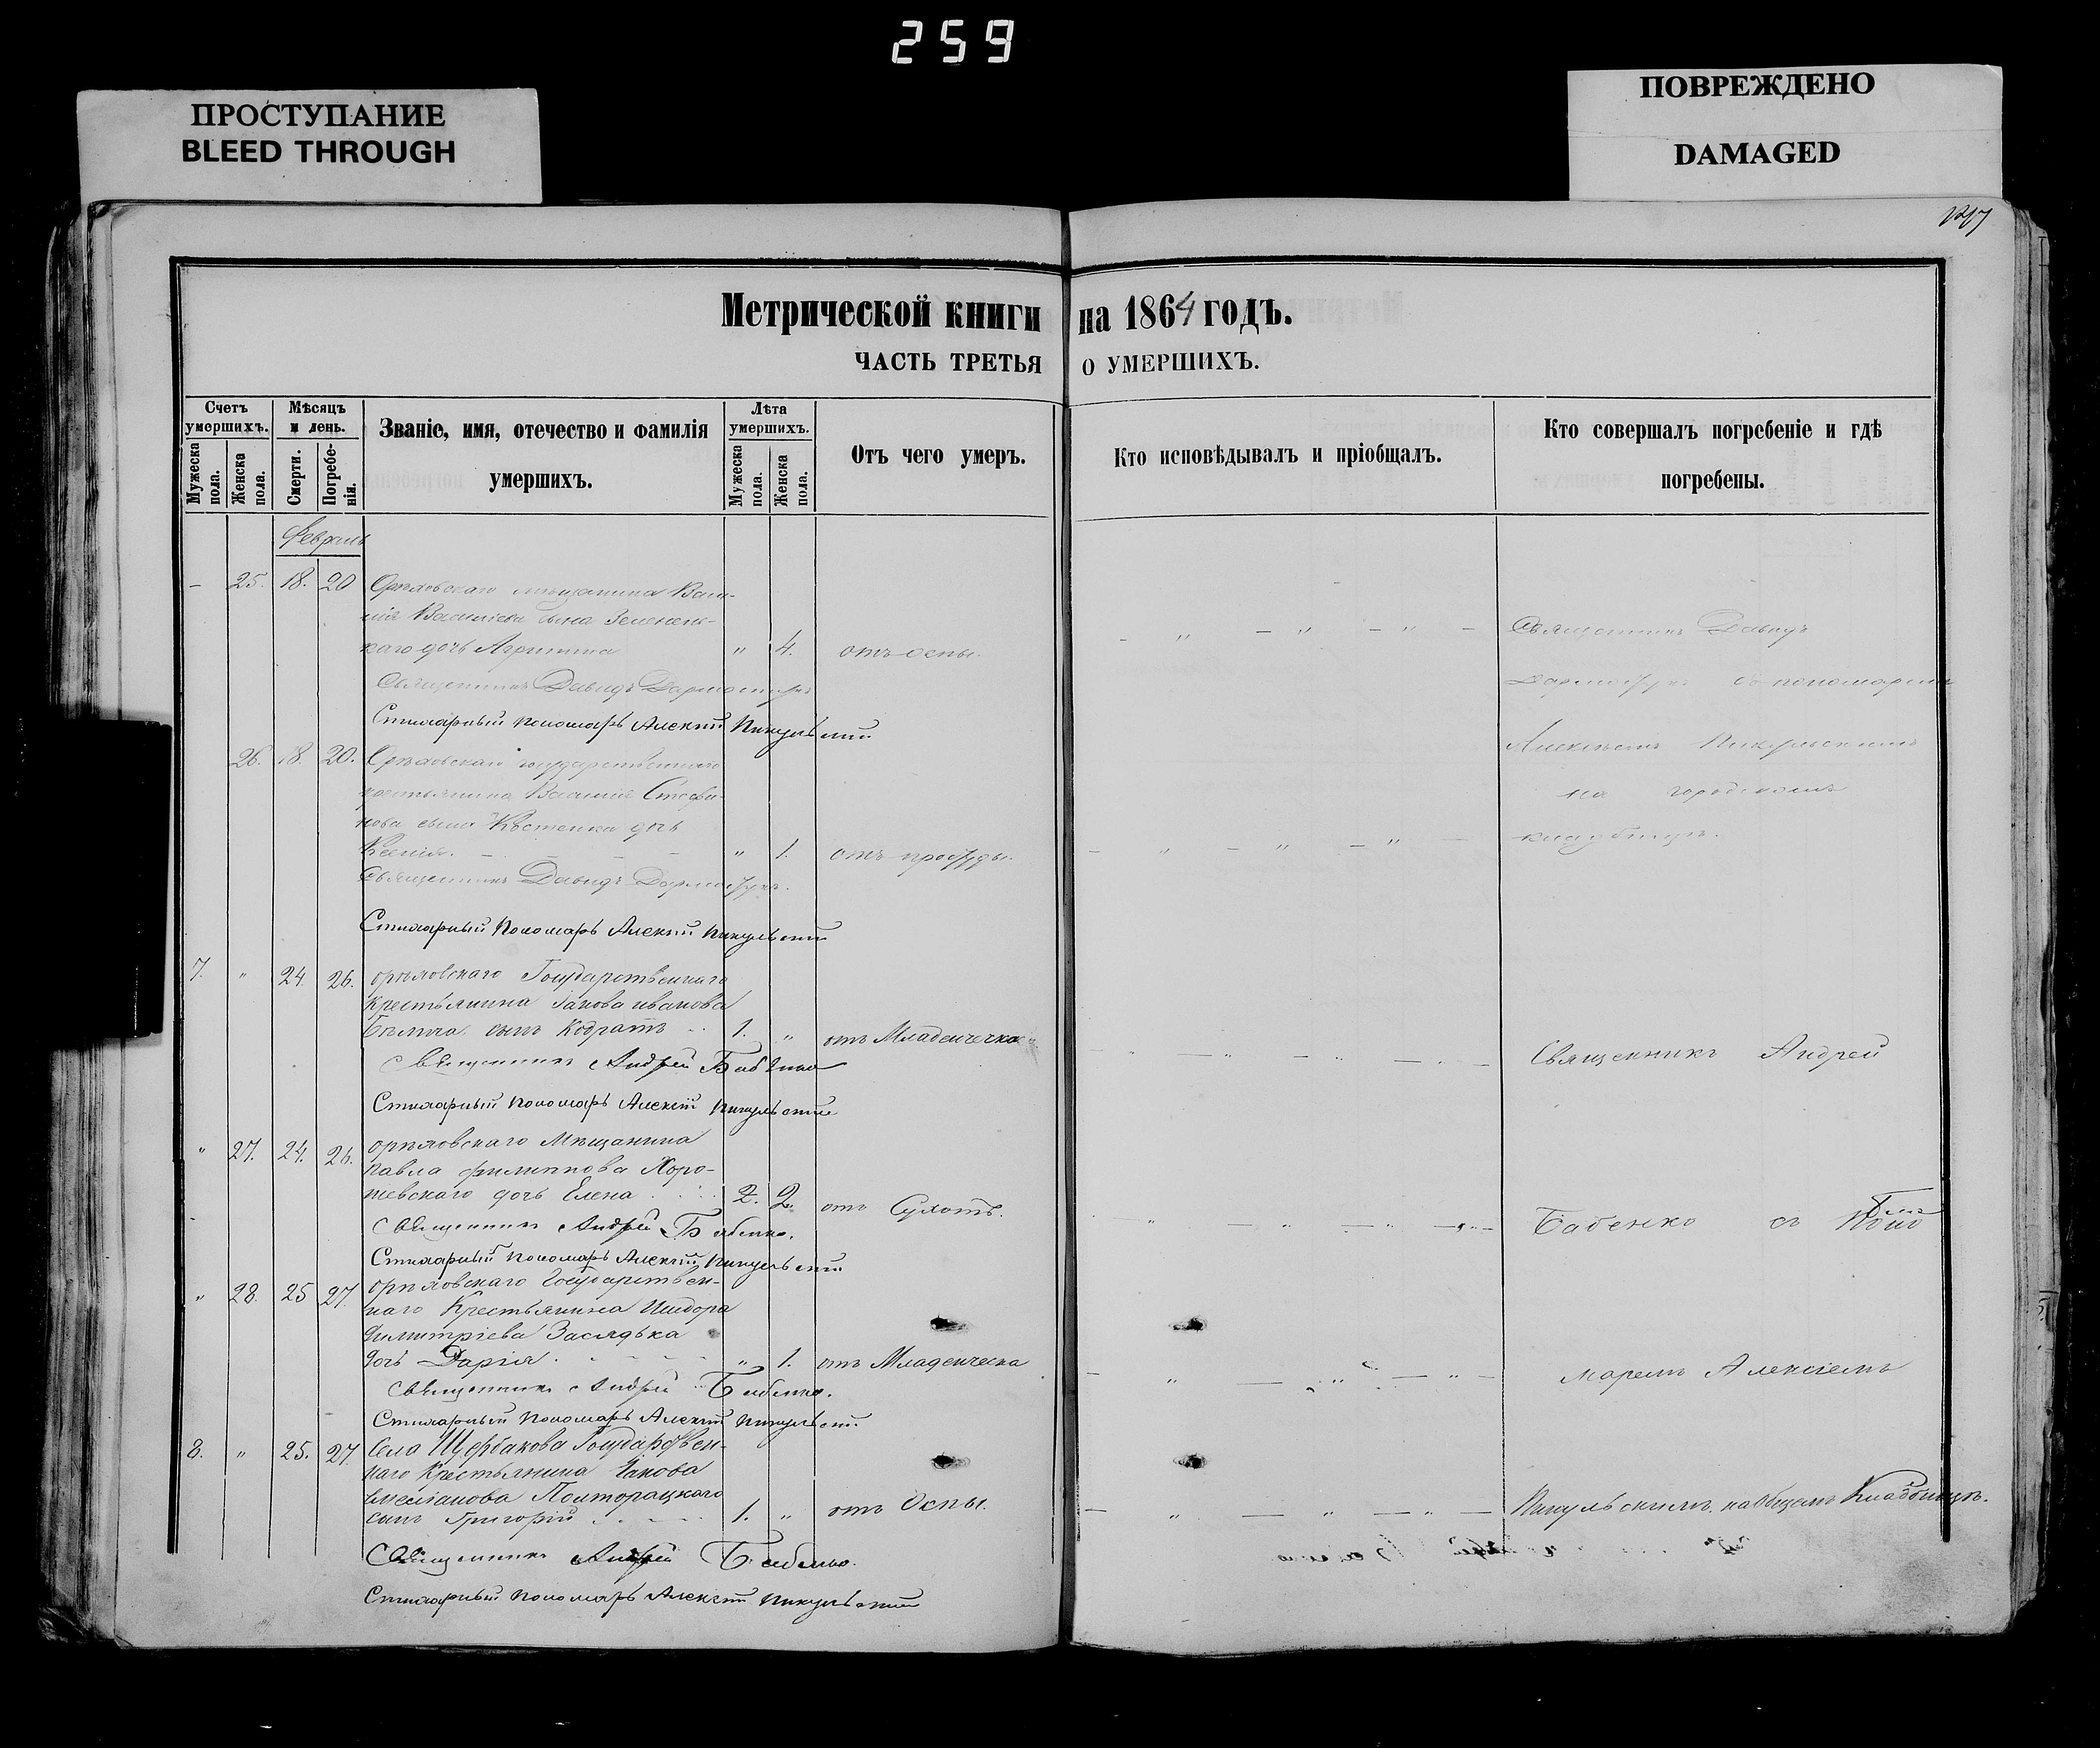 259
ПРОСТУПАНИЕ
BLEED THROUGH
ПОВРЕЖДЕНО
DAMAGED
Метрической книги на 1864 годъ.
ЧАСТЬ ТРЕТЬЯ О УМЕРШИХЪ.
Счетъ умершихъ.
Мужеска пола.
Женска пола.
Мѣсяцъ и день.
Смерти.
Погребенія.
Званіе, имя, отечество и фамилія умершихъ.
Лѣта умершихъ.
Мужеска пола.
Женска пола.
Отъ чего умеръ.
Кто исповѣдывалъ и пріобщалъ.
Кто совершалъ погребеніе и гдѣ погребены.
Февраль
- 25. 18. 20 Орѣховскаго мѣщанина Васи-
лія Василіева сына Зеленень-
каго дочь Агрипина " 4. отъ оспы.
Священникъ Давидъ
Священникъ Давидъ
съ пономаремъ
Стихарный Пономарь Алексій Пикульскій
Алексѣемъ Пикульскимъ
26. 18. 20. Орѣховскаго государственнаго
крестьянина Василія Стефа-
нова сына Костенка дочь
на городскомъ
Ксенія. " 1. отъ простуды.
кладбищѣ.
Священникъ Давидъ
Стихарный Пономарь Алексій Пикульскій
7. " 24. 26. орѣховскаго Государственнаго
Крестьянина Іакова иванова
сынъ Кодратъ 1. " отъ Младенческа
Священникъ Андрей Бабенко
Священникъ Андрей
Стихарный Пономарь Алексій Пикульскій
" 27. 24. 26. орѣховскаго Мѣщанина
Павла филиппова Хоро-
шевскаго дочь Елена 2. 2. отъ Сухотъ.
Священникъ Андрей Бабенко.
Бабенко съ Поно
Стихарный Пономарь Алексій Пикульскій
" 28. 25 27. орѣховскаго Государствен-
наго Крестьянина Исидора
Димитріева Засядька
дочь Дарія. " 1. отъ Младенческа
Священникъ Андрей Бабенко.
маремъ Алексіемъ
Стихарный Пономарь Алексій Пикульскій
8. " 25. 27. Села Щербакова Государствен-
наго Крестьянина Іакова
Полторацкаго
сынъ Григорій 1. " отъ Оспы.
Пикульскимъ. на Общемъ Кладбищѣ.
Священникъ Андрей Бабенко.
Стихарный Пономарь Алексій Пикульскій